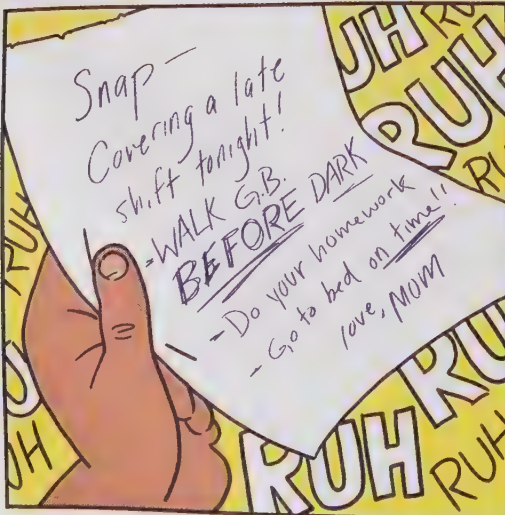 Snap —
Covering a late
shift tonight!
- WALK G.B.
BEFORE DARK
- Do your homework
- Go to bed on time!!
love, MOM
RUH
RUH
RUH
RUH
RUH
RUH
RUH
RUH
RUH